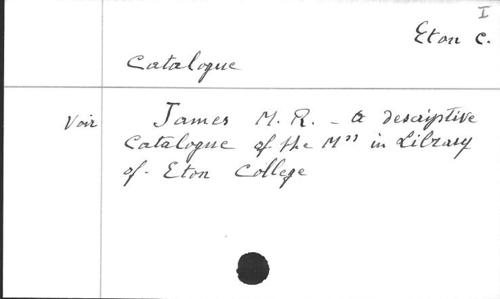 I
Eton C.
Catalogue
Voir James M. R. - a descriptive
Catalogue of the Mss in Library
of - Eton College